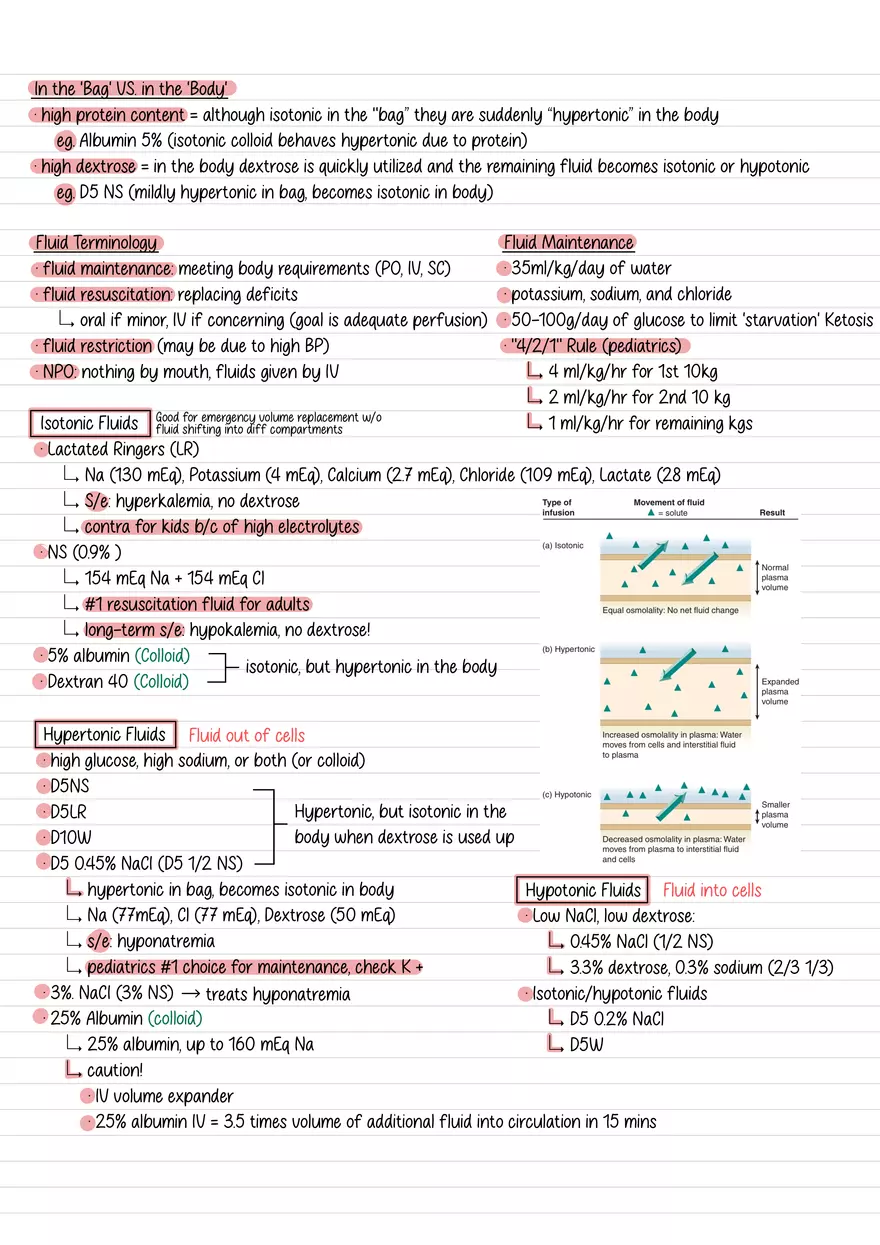 In the 'Bag' VS. in the 'Body'
· high protein content = although isotonic in the "bag" they are suddenly “hypertonic” in the body
eg. Albumin 5% (isotonic colloid behaves hypertonic due to protein)
· high dextrose = in the body dextrose is quickly utilized and the remaining fluid becomes isotonic or hypotonic
eg. D5 NS (mildly hypertonic in bag, becomes isotonic in body)
Fluid Terminology
· fluid maintenance: meeting body requirements (PO, IV, SC)
· fluid resuscitation: replacing deficits
oral if minor, IV if concerning (goal is adequate perfusion)
· fluid restriction (may be due to high BP)
· NPO: nothing by mouth, fluids given by IV
Fluid Maintenance
· 35ml/kg/day of water
· potassium, sodium, and chloride
· 50-100g/day of glucose to limit 'starvation' Ketosis
· "4/2/1" Rule (pediatrics)
4 ml/kg/hr for 1st 10kg
2 ml/kg/hr for 2nd 10 kg
1 ml/kg/hr for remaining kgs
Isotonic Fluids
Good for emergency volume replacement w/o
fluid shifting into diff compartments
· Lactated Ringers (LR)
Na (130 mEq), Potassium (4 mEq), Calcium (2.7 mEq), Chloride (109 mEq), Lactate (28 mEq)
S/e: hyperkalemia, no dextrose
contra for kids b/c of high electrolytes
· NS (0.9% )
154 mEq Na + 154 mEq Cl
#1 resuscitation fluid for adults
long-term s/e: hypokalemia, no dextrose!
· 5% albumin (Colloid)
· Dextran 40 (Colloid)
isotonic, but hypertonic in the body
Type of
infusion
Movement of fluid
▲ = solute
Result
(a) Isotonic
Normal
plasma
volume
Equal osmolality: No net fluid change
(b) Hypertonic
Expanded
plasma
volume
Increased osmolality in plasma: Water
moves from cells and interstitial fluid
to plasma
(c) Hypotonic
Smaller
plasma
volume
Decreased osmolality in plasma: Water
moves from plasma to interstitial fluid
and cells
Hypertonic Fluids Fluid out of cells
· high glucose, high sodium, or both (or colloid)
· D5NS
· D5LR
· D10W
· D5 0.45% NaCl (D5 1/2 NS)
Hypertonic, but isotonic in the
body when dextrose is used up
hypertonic in bag, becomes isotonic in body
Na (77mEq), Cl (77 mEq), Dextrose (50 mEq)
s/e: hyponatremia
pediatrics #1 choice for maintenance, check K +
· 3%. NaCl (3% NS) → treats hyponatremia
· 25% Albumin (colloid)
25% albumin, up to 160 mEq Na
caution!
· IV volume expander
· 25% albumin IV = 3.5 times volume of additional fluid into circulation in 15 mins
Hypotonic Fluids Fluid into cells
· Low NaCl, low dextrose:
0.45% NaCl (1/2 NS)
3.3% dextrose, 0.3% sodium (2/3 1/3)
· Isotonic/hypotonic fluids
D5 0.2% NaCl
D5W